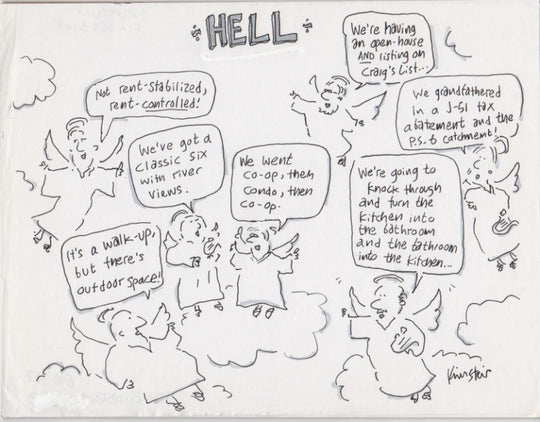 HELL
Not rent-stabilized,
rent-controlled!
We've got a
classic six
with river
views.
It's a walk-up,
but there's
outdoor space!
We went
co-op, then
condo, then
co-op.
We're having
an open-house
AND listing on
Craig's List...
We grandfathered
in a J-51 tax
abatement and the
P.S. 6 catchment!
We're going to
knock through
and turn the
kitchen into
the bathroom
and the bathroom
into the kitchen...